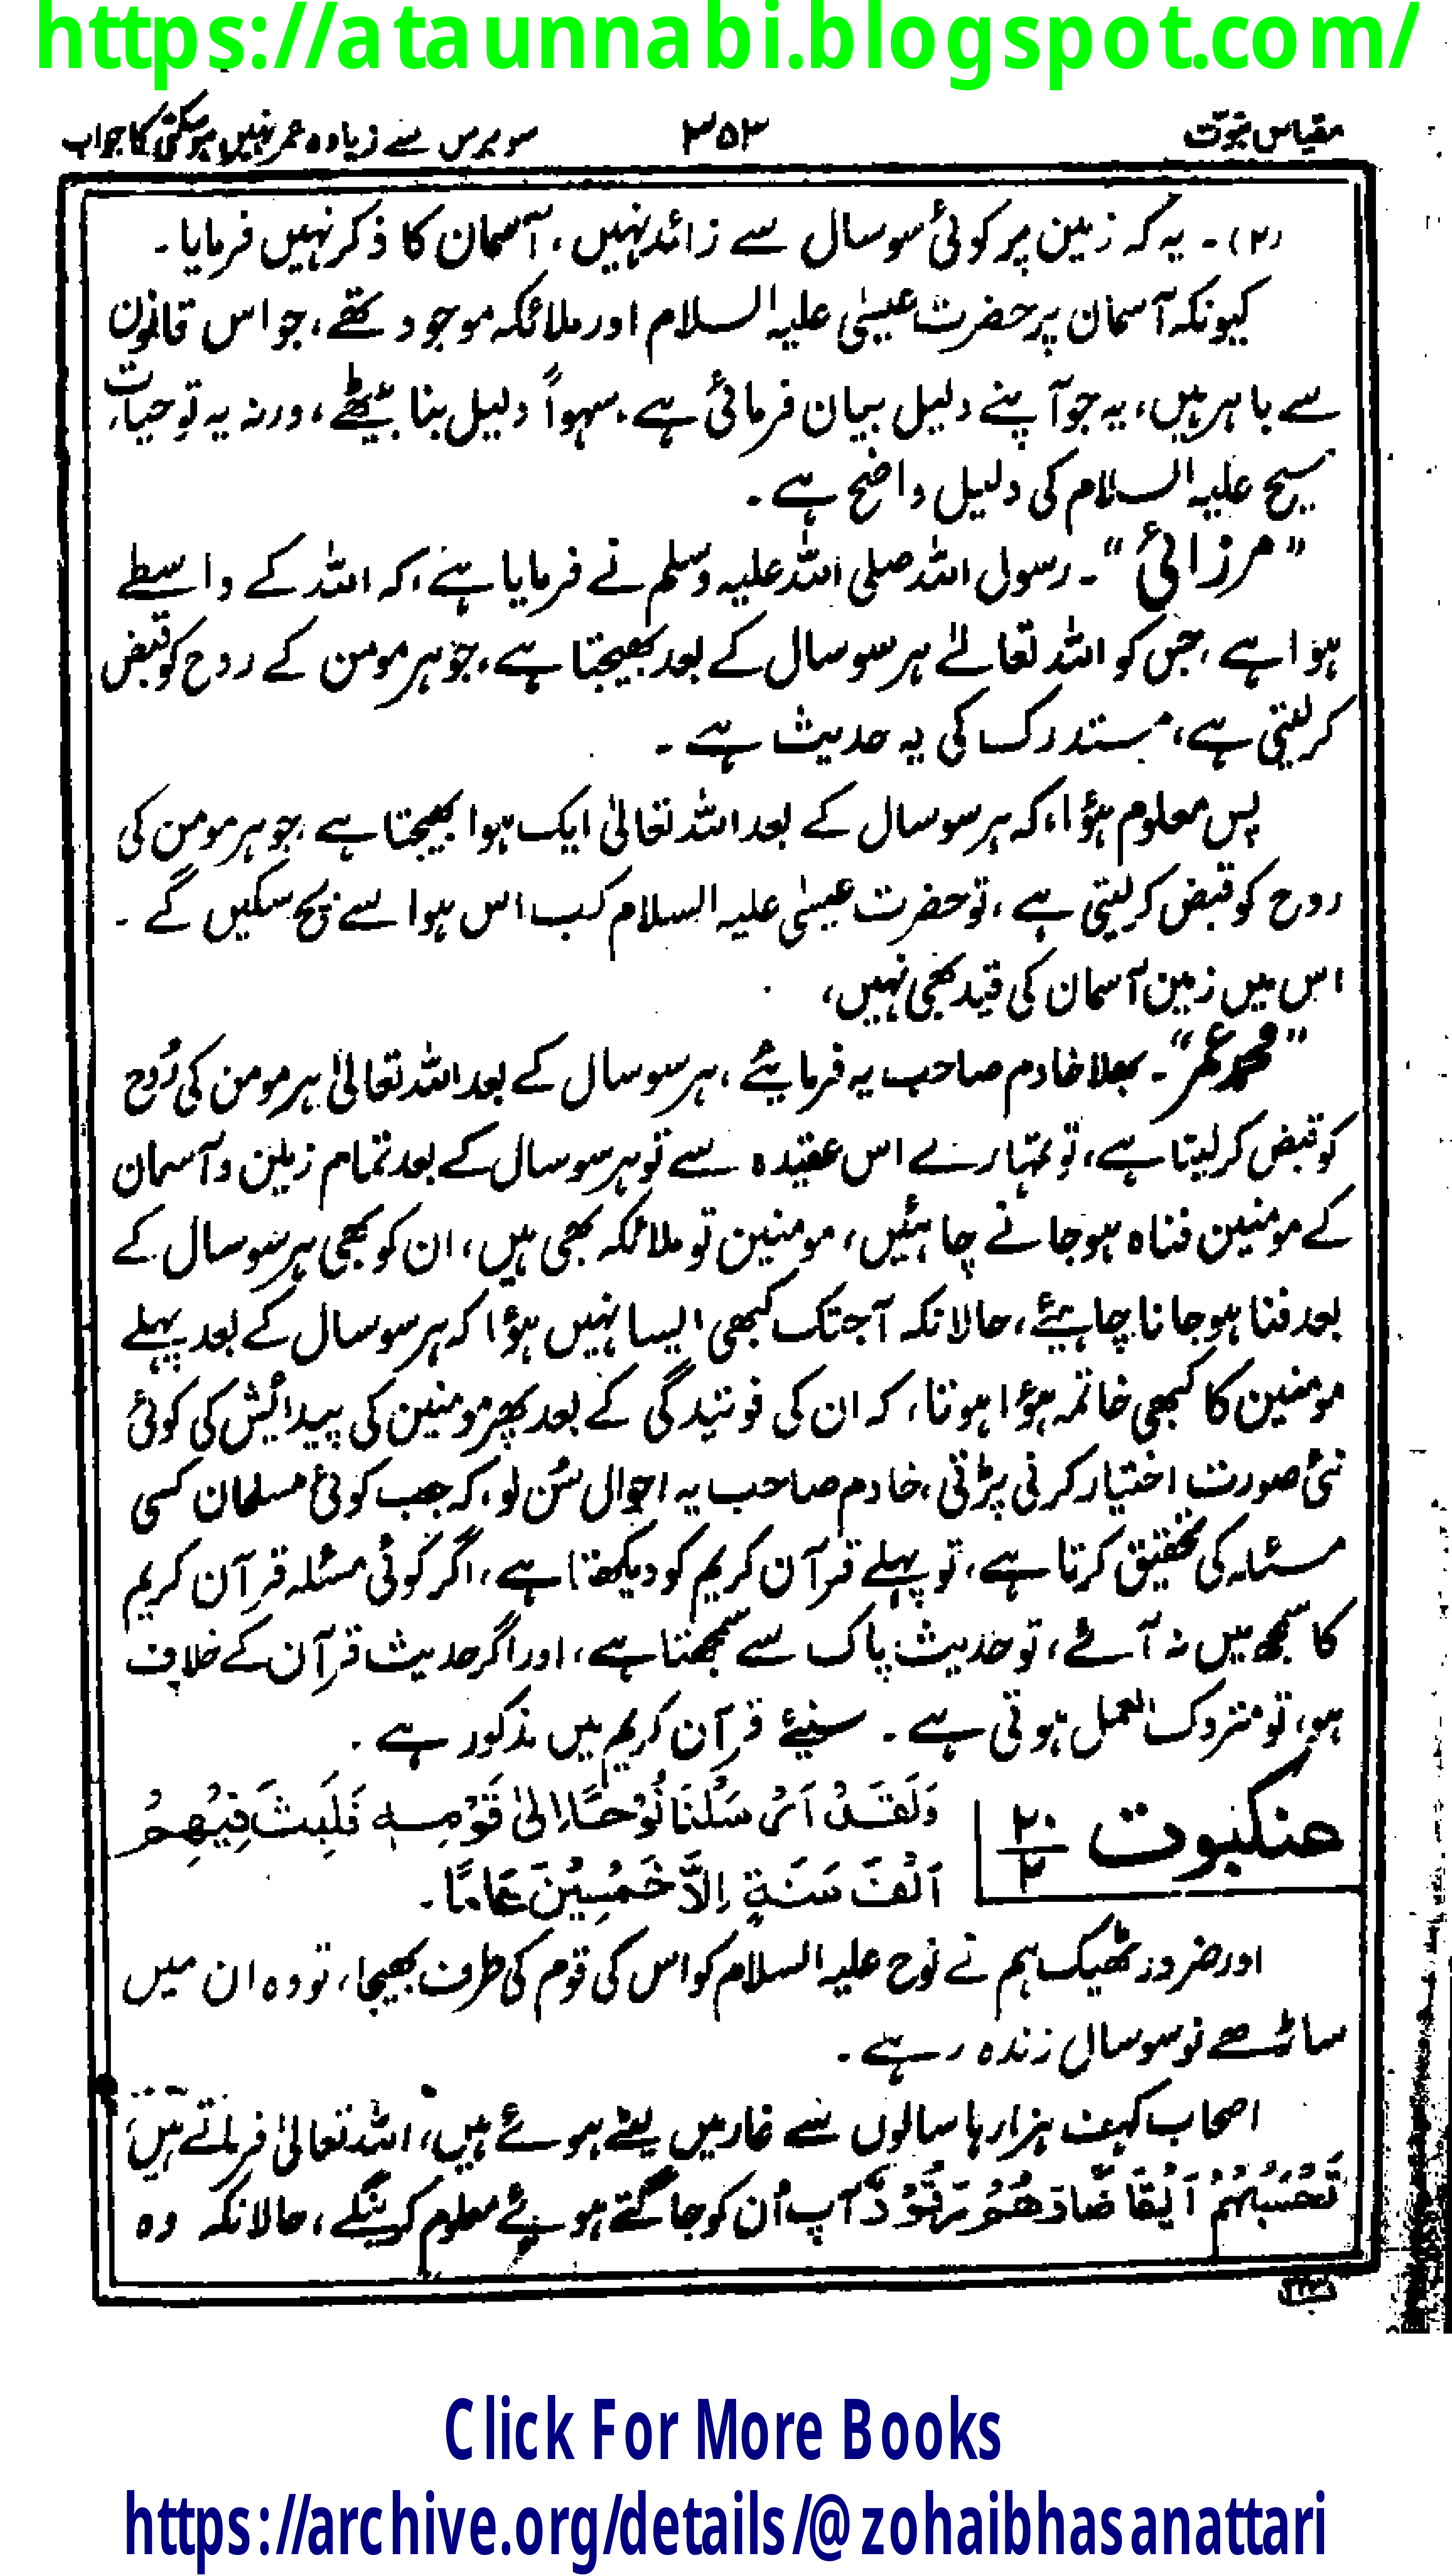 https://ataunnabi.blogspot.com/
مقیاس نبوّت ۳۵۳ سو برس سے زیادہ عمر نہیں ہو سکتی کا جواب
(۲)۔ یہ کہ زمین پر کوئی سو سال سے زائد نہیں، آسمان کا ذکر نہیں فرمایا۔
کیونکہ آسمان پر حضرت عیسیٰ علیہ السلام اور ملائکہ موجود تھے، جو اس قانون
سے باہر ہیں، یہ جو آپنے دلیل بیان فرمائی ہے۔ سہواً دلیل بنا بیٹھے، ورنہ یہ تو حیات
مسیح علیہ السلام کی دلیل واضح ہے۔
"مرزائی"۔ رسول اللہ صلی اللہ علیہ وسلم نے فرمایا ہے، کہ اللہ کے واسطے
ہوا ہے، جس کو اللہ تعالےٰ ہر سو سال کے بعد بھیجتا ہے، جو ہر مومن کے روح کو قبض
کر لیتی ہے، مستدرک کی یہ حدیث ہے۔
پس معلوم ہؤا، کہ ہر سو سال کے بعد اللہ تعالیٰ ایک ہوا بھیجتا ہے، جو ہر مومن کی
روح کو قبض کر لیتی ہے، تو حضرت عیسیٰ علیہ السلام کب اس ہوا سے بچ سکیں گے۔
اس میں زمین آسمان کی قید بھی نہیں،
"محمد عمر"۔ بھلا خادم صاحب یہ فرمایئے، ہر سو سال کے بعد اللہ تعالیٰ ہر مومن کی رُوح
کو قبض کر لیتا ہے، تو تمہارے اس عقیدہ سے تو ہر سو سال کے بعد تمام زمین و آسمان
کے مومنین فناہ ہو جانے چاہئیں، مومنین تو ملائکہ بھی ہیں، ان کو بھی ہر سو سال کے
بعد فنا ہو جانا چاہیئے، حالانکہ آجتک کبھی ایسا نہیں ہؤا کہ ہر سو سال کے بعد پہلے
مومنین کا کبھی خاتمہ ہؤا ہوتا، کہ ان کی فوتیدگی کے بعد پھر مومنین کی پیدائش کی کوئی
نئی صورت اختیار کرنی پڑتی، خادم صاحب یہ احوال سُن لو، کہ جب کوئی مسلمان کسی
مسئلہ کی تحقیق کرتا ہے، تو پہلے قرآن کریم کو دیکھتا ہے، اگر کوئی مسئلہ قرآن کریم
کا سمجھ میں نہ آئے، تو حدیث پاک سے سمجھتا ہے، اور اگر حدیث قرآن کے خلاف
ہو، تو متروک العمل ہوتی ہے۔ سنیئے قرآن کریم میں مذکور ہے۔
عنکبوت ۲۰/۲ وَلَقَدْ اَرْسَلْنَا نُوْحًا اِلیٰ قَوْمِہٖ فَلَبِثَ فِیْهِمْ
اَلْفَ سَنَةٍ اِلَّا خَمْسِیْنَ عَامًا۔
اور ضرور ٹھیک ہم نے نوح علیہ السلام کو اس کی قوم کی طرف بھیجا، تو وہ ان میں
ساڑھے نو سو سال زندہ رہے۔
اصحاب کہف ہزارہا سالوں سے غار میں لیٹے ہوئے ہیں، اللہ تعالیٰ فرماتے ہیں،
تَحْسَبُهُمْ اَیْقَاظًا وَّهُمْ رُقُوْدٌ آپ اُن کو جاگتے ہوئے معلوم کرینگے، حالانکہ وہ
Click For More Books
https://archive.org/details/@zohaibhasanattari